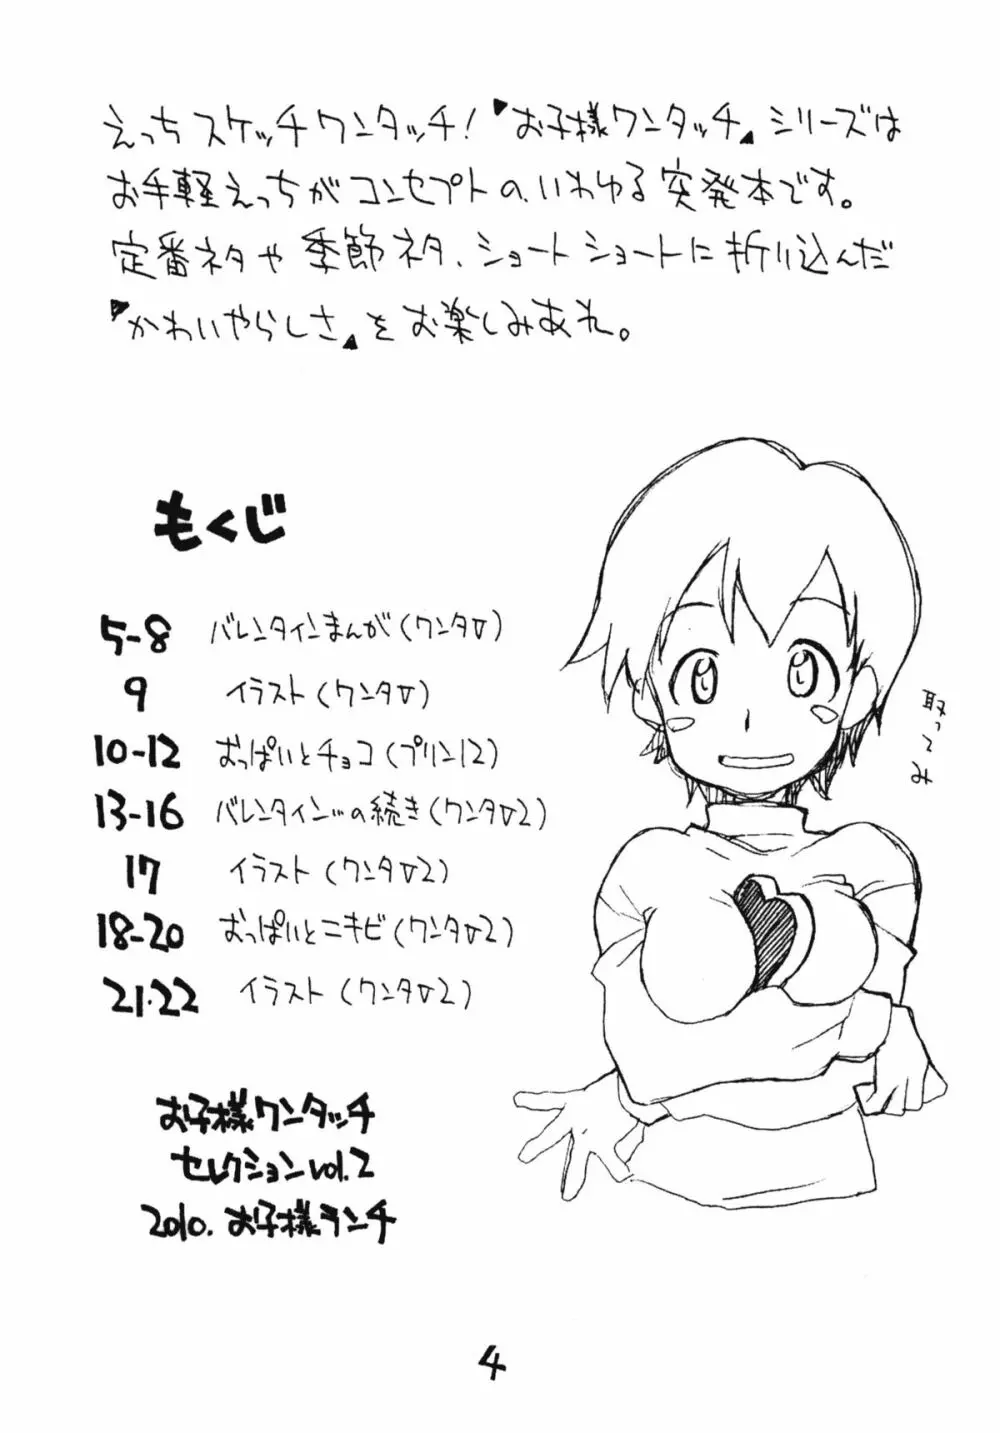 えっちスケッチワンタッチ!『お子様ワンタッチ』シリーズは
お手軽えっちがコンセプトの、いわゆる突発本です。
定番ネタや季節ネタ、ショートショートに折り込んだ
『かわいやらしさ』をお楽しみあれ。
もくじ
5-8 バレンタインまんが(ワンタV)
9 イラスト(ワンタV)
10-12 おっぱいとチョコ(プリン12)
13-16 バレンタイン…の続き(ワンタV2)
17 イラスト(ワンタV2)
18-20 おっぱいとニキビ(ワンタV2)
21・22 イラスト(ワンタV2)
取ってみ
お子様ワンタッチ
セレクションvol.2
2010. お子様ランチ
4